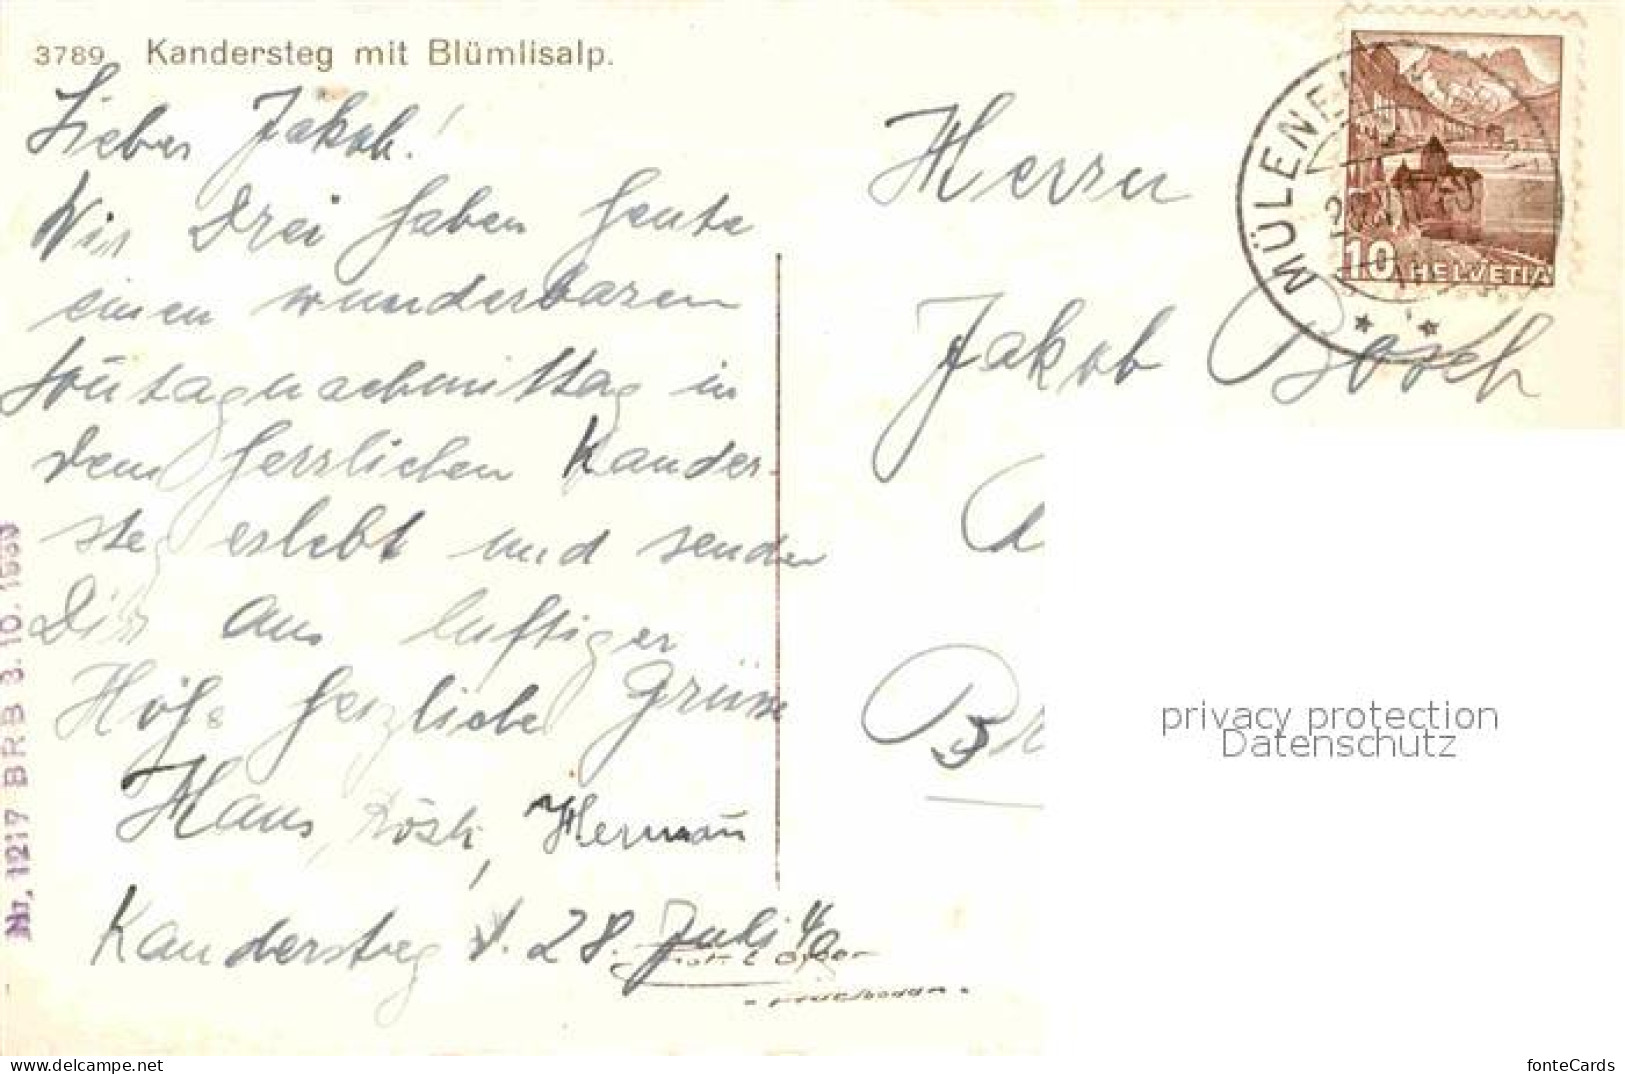 3789 Kandersteg mit Blümlisalp.
Lieber Jakob!
Wir Drei haben heute
einen wunderbaren
Sonntagnachmittag in
dem herrlichen Kander-
steg erlebt und senden
Dir aus luftiger
Höhe herzliche Grüsse
Hans, Rösli, Hermann
Kandersteg d. 28. Juli 40
Nr. 1217 BRB 3.10.1939
MÜLENEN
10 HELVETIA
Herrn
Jakob Bosch
privacy protection
Datenschutz
www.delcampe.net
fonteCards